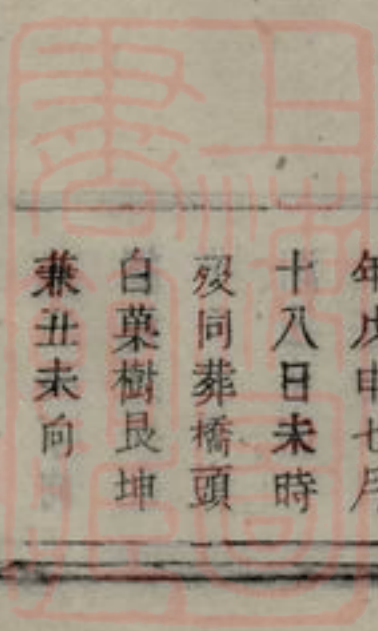 年戊申七月
十八日未時
殁同葬橋頭
白菓樹艮坤
兼丑未向